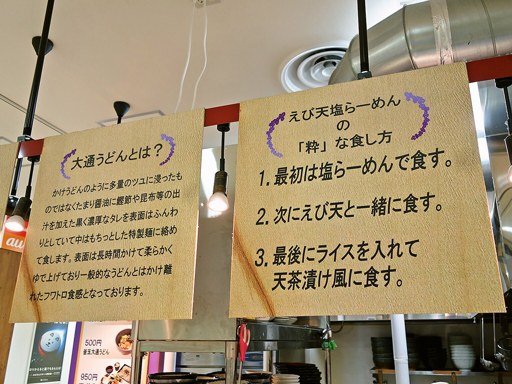 大通うどんとは？
かけうどんのように多量のツユに浸ったも
のではなくたまり醤油に鰹節や昆布等の出
汁を加えた黒く濃厚なタレを表面はふんわ
りとしていて中はもちっとした特製麺に絡め
て食します。表面は長時間かけて柔らかく
ゆで上げており一般的なうどんとはかけ離
れたフワトロ食感となっております。
えび天塩らーめん
の
「粋」な食し方
1. 最初は塩らーめんで食す。
2. 次にえび天と一緒に食す。
3. 最後にライスを入れて
天茶漬け風に食す。
au
500円
釜玉大通うどん
950円